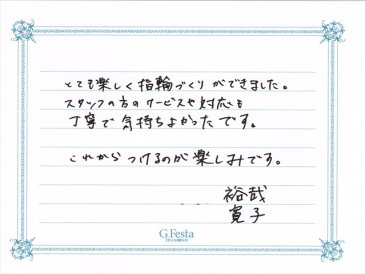 とても楽しく指輪づくりができました。
スタッフの方のサービスや対応も
丁寧で気持ちよかったです。
これからつけるのが楽しみです。
裕哉
寛子
G.Festa